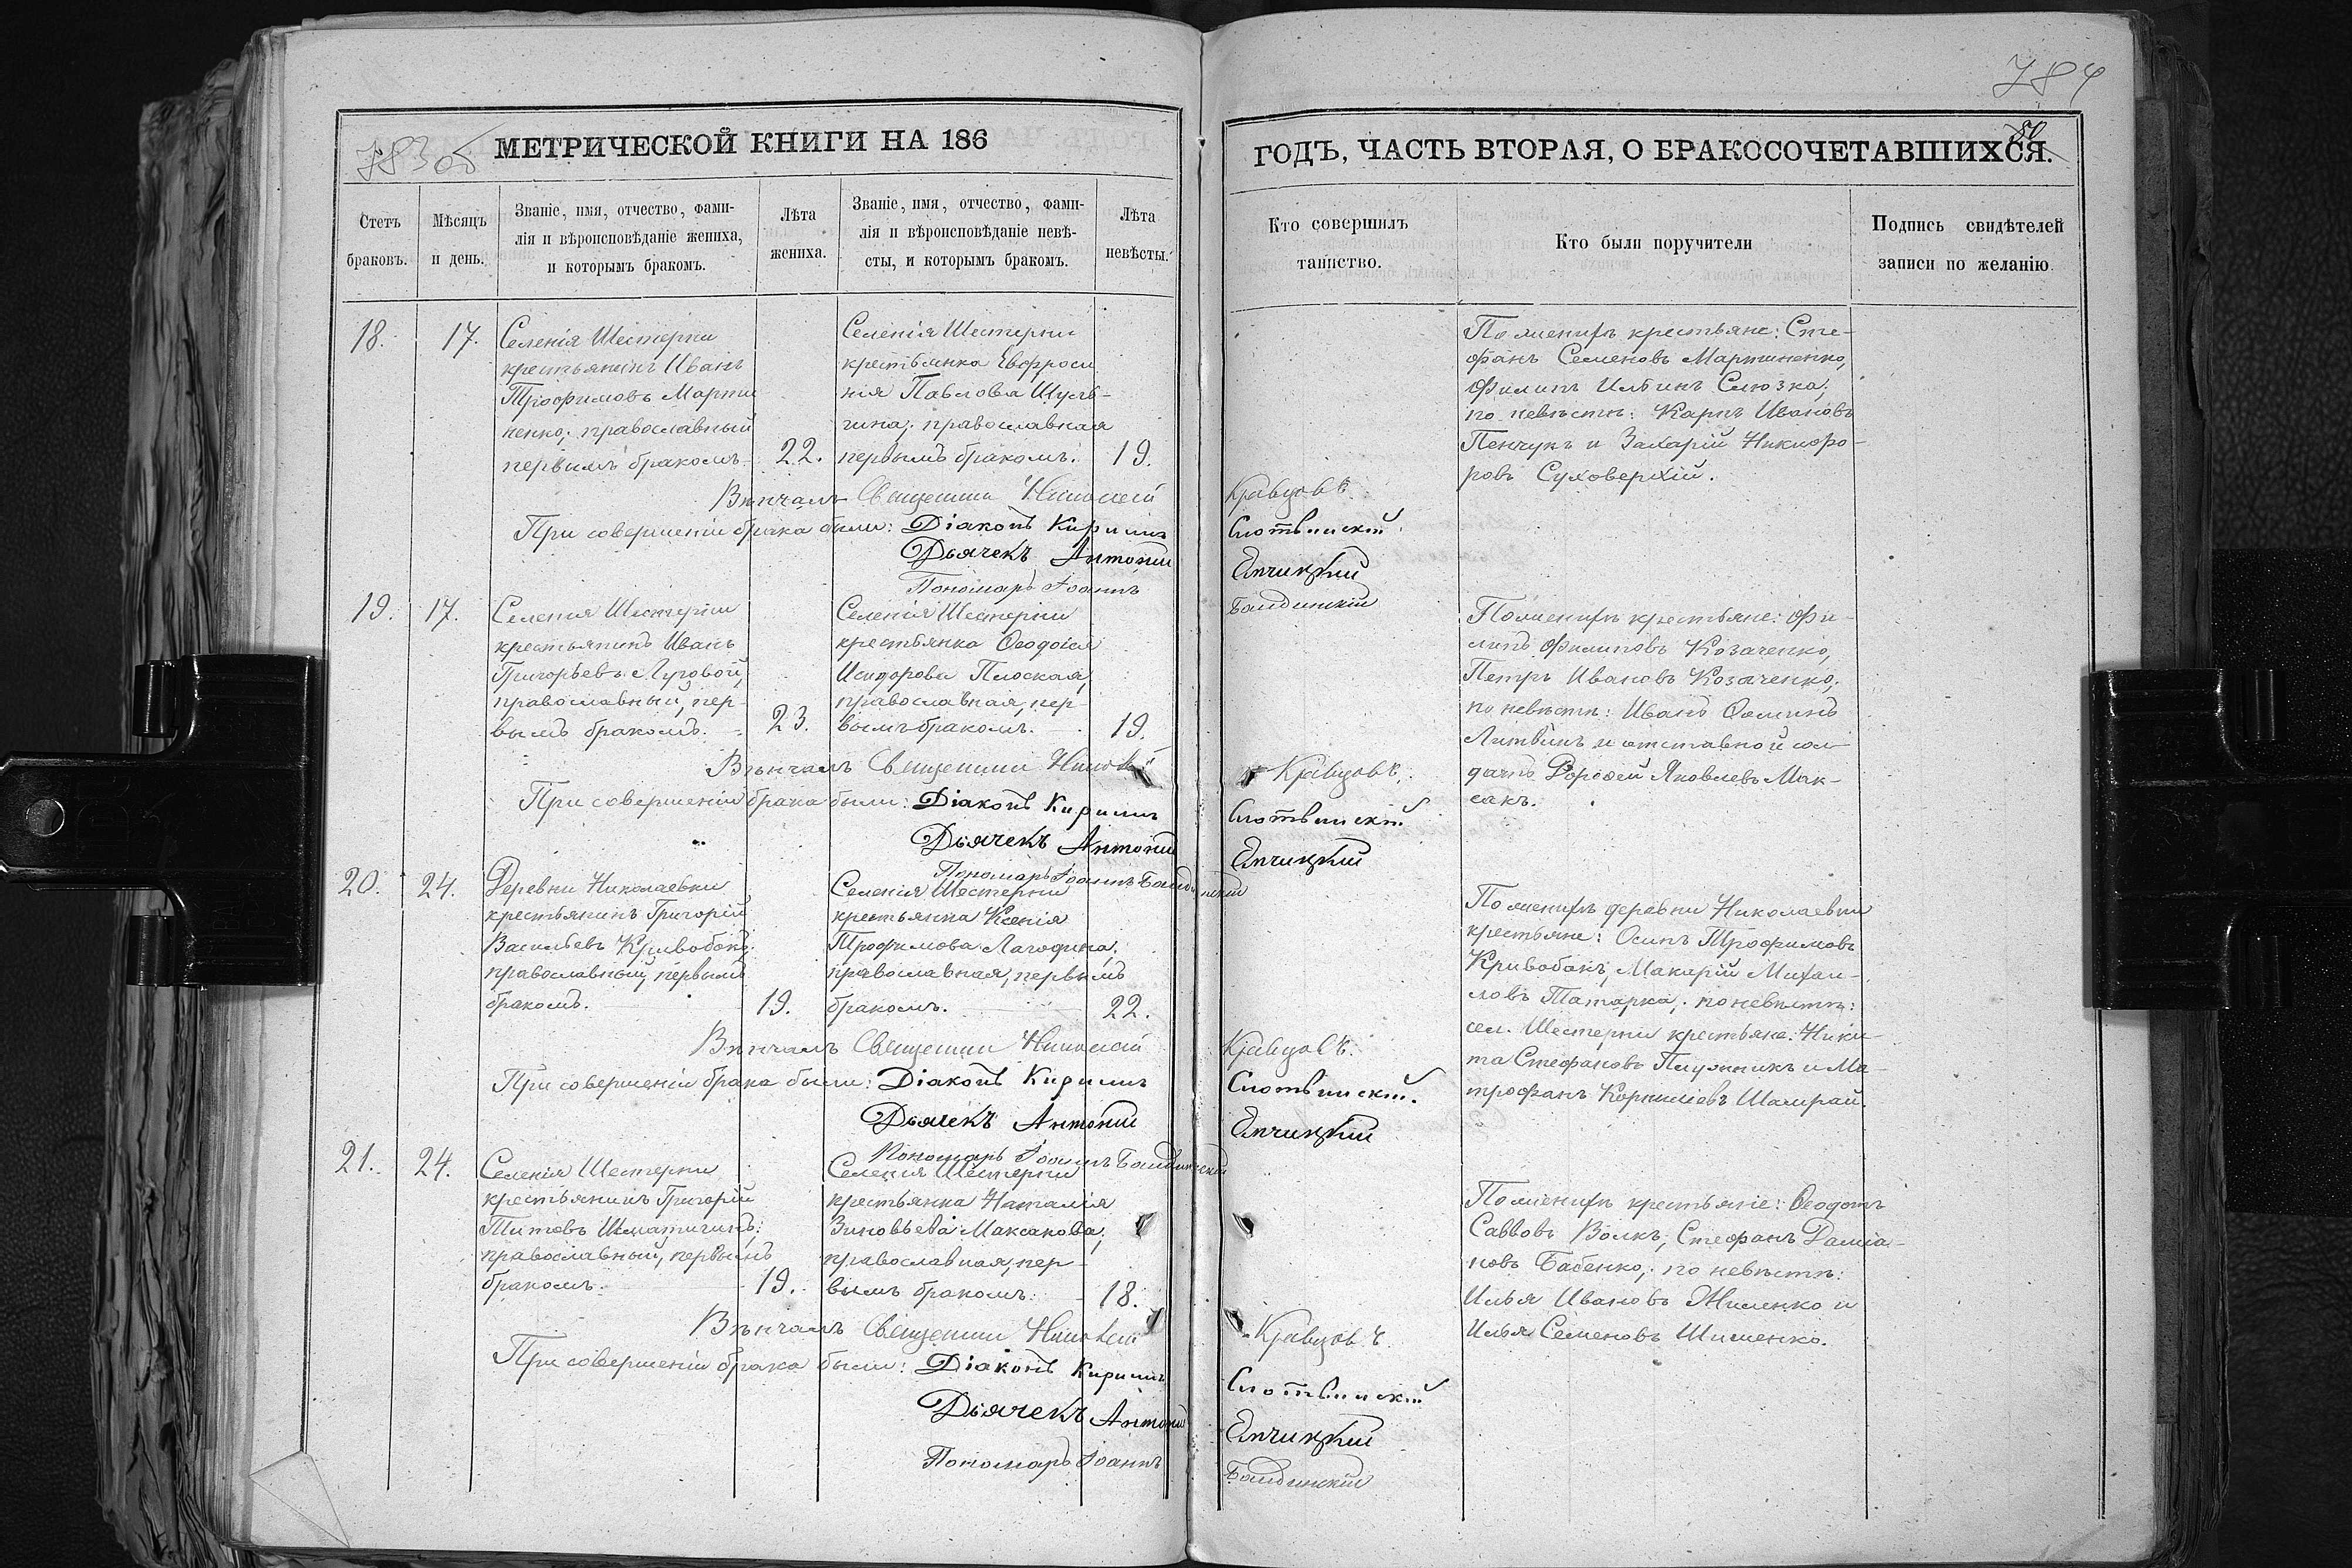 783 об
784
МЕТРИЧЕСКОЙ КНИГИ НА 186
ГОДЪ, ЧАСТЬ ВТОРАЯ, О БРАКОСОЧЕТАВШИХСЯ.
Счетъ браковъ.
Мѣсяцъ и день.
Званіе, имя, отчество, фами-
лія и вѣроисповѣданіе жениха,
и которымъ бракомъ.
Лѣта
жениха.
Званіе, имя, отчество, фами-
лія и вѣроисповѣданіе невѣ-
сты, и которымъ бракомъ.
Лѣта
невѣсты.
Кто совершилъ
таинство.
Кто были поручители
Подпись свидѣтелей
записи по желанію.
18.
17.
Селенія Шестерни
крестьянинъ Иванъ
Трофимовъ Марти
ненко; православный
первымъ бракомъ.
22.
Селенія Шестерни
крестьянка Евфроси
нія Павлова Шуль-
гина; православная
первымъ бракомъ.
19.
По женихѣ крестьяне: Сте-
фанъ Семеновъ Мартиненко,
Филипъ Ильинъ Слюзка;
по невѣстѣ: Карпъ Ивановъ
Пенчукъ и Захарій Никифо-
ровъ Суховерхій.
Вѣнчалъ Священник Николай Кравцовъ.
При совершеніи брака были: Діаконъ Кирилъ Слотвинскій
Дьячекъ Антоній
Пономарь Іоаннъ
19.
17.
Селенія Шестерни
крестьянинъ Иванъ
Григорьевъ Луговой,
православный, пер-
вымъ бракомъ.
23.
Селенія Шестерни
крестьянка Ѳеодосія
Исидорова Плоская,
православная, пер-
вымъ бракомъ.
19.
По женихѣ крестьяне: Фи-
липъ Филиповъ Козаченко,
Петръ Ивановъ Козаченко;
по невѣстѣ: Иванъ Ѳоминъ
Литвинъ и отставной сол-
датъ Дорофей Яковлевъ Мак-
сакъ.
Вѣнчалъ Священник Николай Кравцовъ.
При совершеніи брака были: Діаконъ Кирилъ Слотвинскій
Дьячекъ Антоній
Пономарь Іоаннъ
20.
24.
Деревни Николаевки
крестьянинъ Григорій
Васильевъ Кривобокъ;
православный, первымъ
бракомъ.
19.
Селенія Шестерни
крестьянка Ксенія
Трофимова Лагодина,
православная, первымъ
бракомъ.
22.
По женихѣ деревни Николаевки
крестьяне: Осипъ Трофимовъ
Кривобокъ, Макарій Михаи-
ловъ Татарка; по невѣстѣ:
сел. Шестерни крестьяне: Ники-
та Стефановъ Плужникъ и Ми-
трофанъ Корниліевъ Шамрай.
Вѣнчалъ Священник Николай Кравцовъ.
При совершеніи брака были: Діаконъ Кирилъ Слотвинскій.
Дьячекъ Антоній
Пономарь Іоаннъ
21.
24.
Селенія Шестерни
крестьянинъ Григорій
Титовъ
православный, первымъ
бракомъ.
19.
Селенія Шестерни
крестьянка Наталія
Зиновьева Максакова;
православная, пер-
вымъ бракомъ.
18.
По женихѣ крестьяне: Ѳеодотъ
Саввовъ Волкъ, Стефанъ Даміа-
новъ Бабенко; по невѣстѣ:
Илья Ивановъ Жиленко и
Илья Семеновъ Шишенко.
Вѣнчалъ Священник Николай Кравцовъ.
При совершеніи брака были: Діаконъ Кирилъ Слотвинскій
Дьячекъ Антоній
Пономарь Іоаннъ